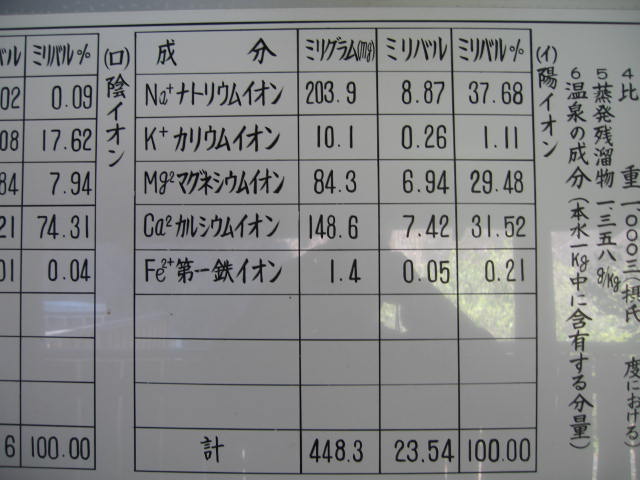 4 比 重 一.〇〇〇三(摂氏 度における)
5 蒸発残溜物 一.三五八 g/kg
6 温泉の成分(本水一Kg中に含有する分量)
(イ)陽イオン
成 分 ミリグラム(mg) ミリバル ミリバル%
Na⁺ナトリウムイオン 203.9 8.87 37.68
K⁺カリウムイオン 10.1 0.26 1.11
Mg²マグネシウムイオン 84.3 6.94 29.48
Ca²カルシウムイオン 148.6 7.42 31.52
Fe²⁺第一鉄イオン 1.4 0.05 0.21
計 448.3 23.54 100.00
(ロ)陰イオン
バル ミリバル%
02 0.09
08 17.62
84 7.94
21 74.31
01 0.04
6 100.00